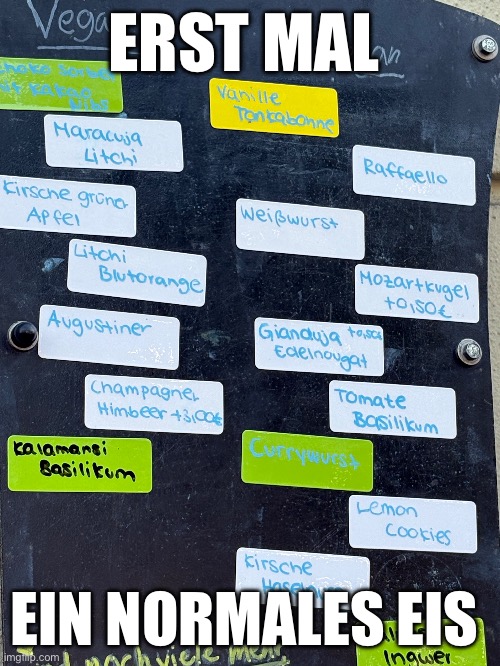 Vega
an
ERST MAL
Vanille
Tonkabohne
Maracuja
Litchi
Raffaello
Kirsche grüner
Apfel
Weißwurst
Litchi
Blutorange
Mozartkugel
+0,50€
Augustiner
Gianduja +0,50€
Edelnougat
Champagner
Himbeer +3,00€
Tomate
Basilikum
Kalamansi
Basilikum
Currywurst
Lemon
Cookies
Kirsche
EIN NORMALES EIS
Ingwer
noch viele mehr
imgflip.com